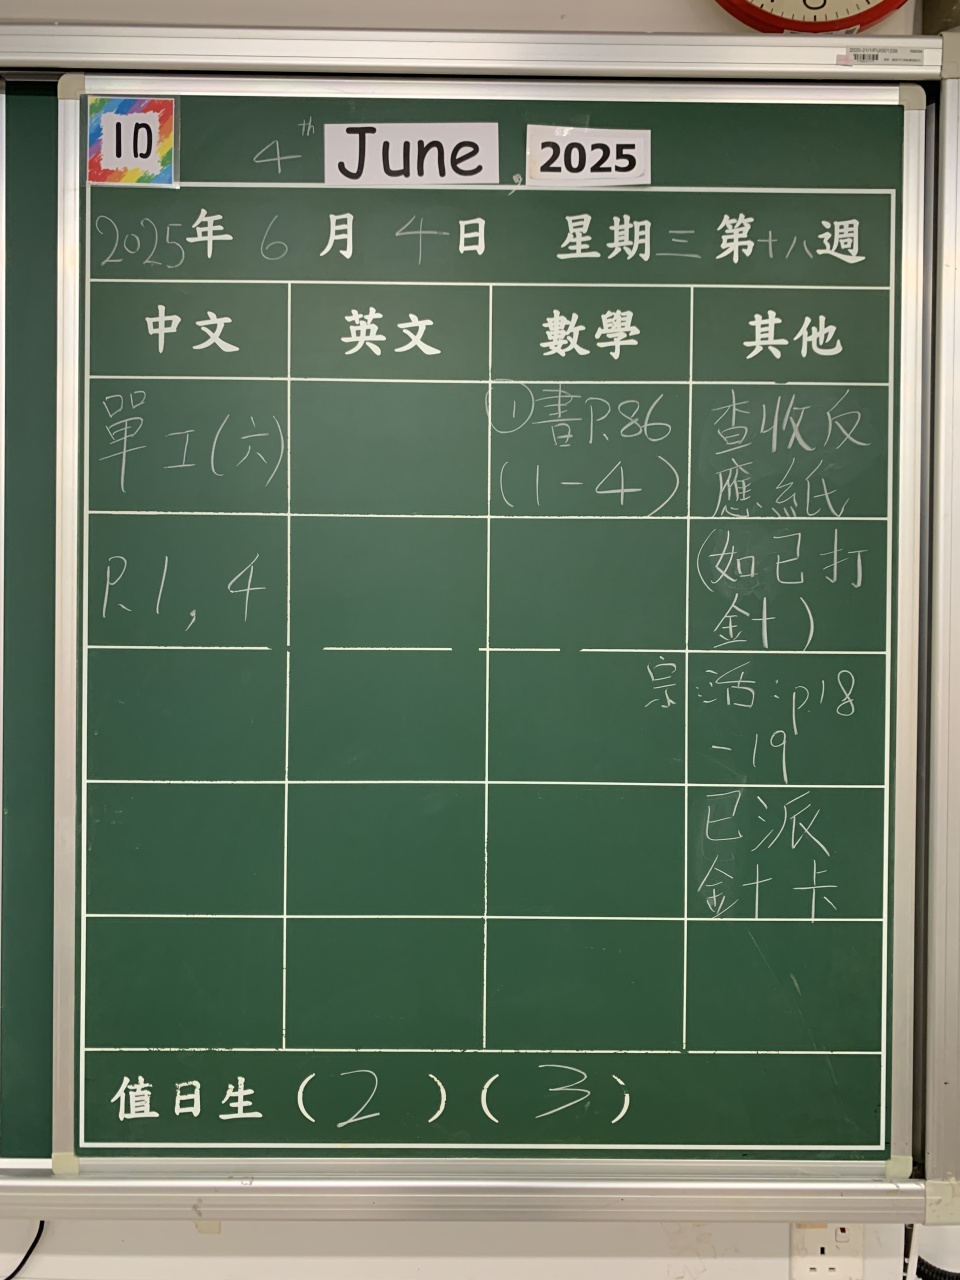 1D
4th June, 2025
2025年 6月 4日 星期三 第十八週
中文 英文 數學 其他
單工(六) ①書P.86 查收反
(1-4) 應紙
P.1, 4 (如已打
針)
宗活:p.18
-19
已派
針卡
值日生 (2) (3)